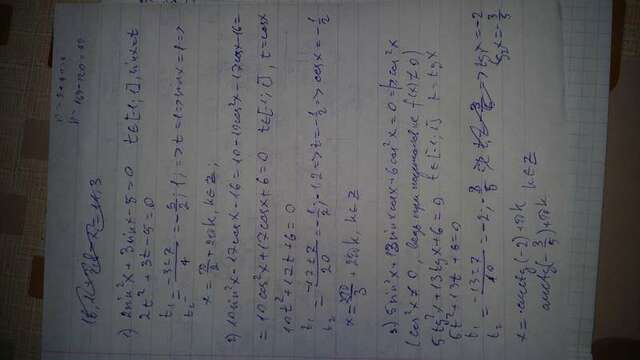 1) 2sin²x + 3sinx - 5 = 0   t∈[-1;1], sinx=t
2t² + 3t - 5 = 0
t₁ t₂ = (-3±7)/4 = -5/2; 1, => t=1 => sinx=1 =>
x = π/2 + 2πk, k∈Z;
2) 10sin²x - 17cosx - 16 = 10 - 10cos²x - 17cosx - 16 =
= 10cos²x + 17cosx + 6 = 0   t∈[-1;1], t=cosx
10t² + 17t + 6 = 0
t₁ t₂ = (-17±7)/20 = -1/2; -1,2 => t=-1/2 => cosx =
x = 2π/3 + 2πk, k∈Z
3) 5sin²x + 13sinxcosx + 6cos²x = 0 =>cos²x
(cos²x≠0, ведь при подстановке f(x)≠0)
5tg²x + 13tgx + 6 = 0   t∈[-1;1]   t=tgx
5t² + 13t + 6 = 0
t₁ t₂ = (-13±7)/10 = -2; -3/5 => tgx=-2
tgx=-3/5
x = arctg(-2)+πk
arctg(-3/5)+πk   k∈Z